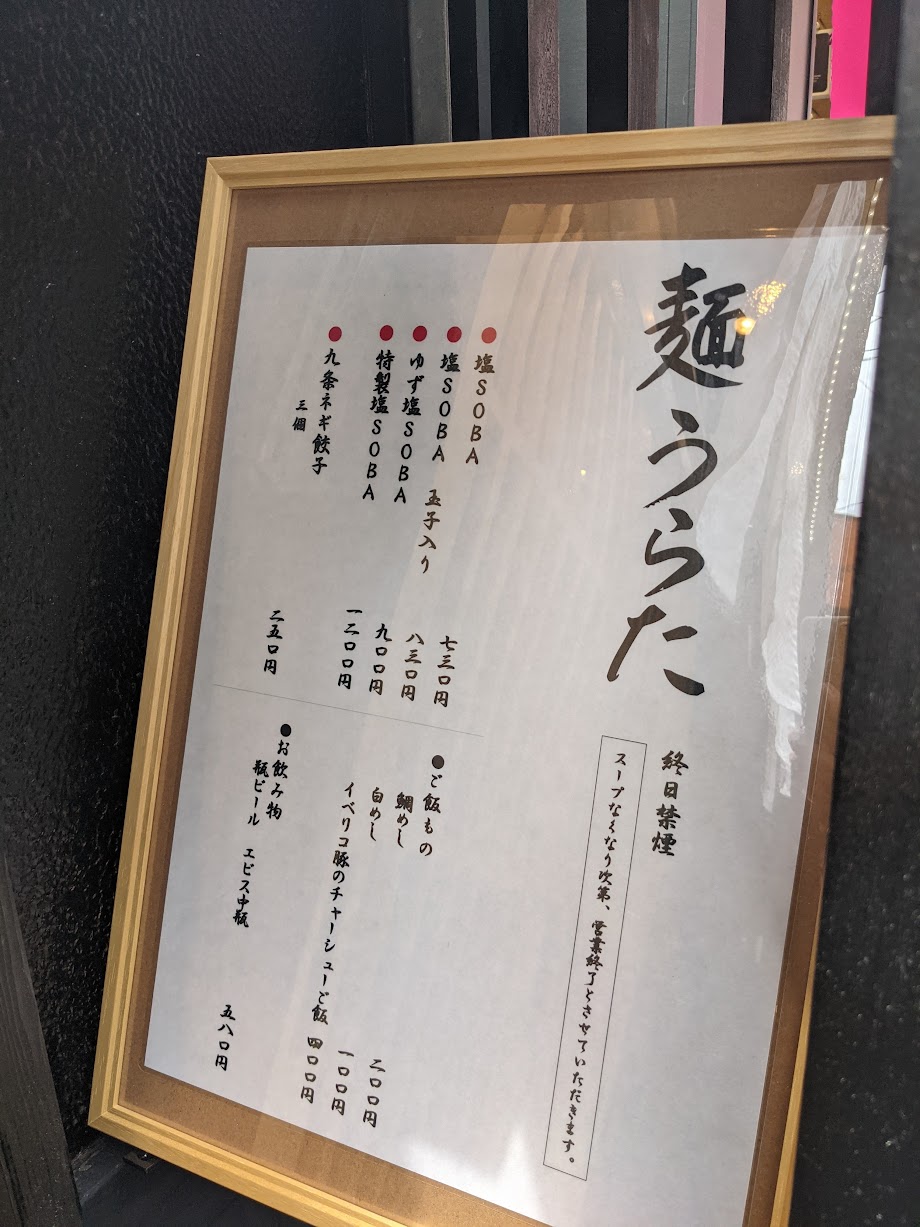 麺うらた
終日禁煙
スープなくなり次第、営業終了とさせていただきます。
●塩SOBA 七三〇円
●塩SOBA 玉子入り 八三〇円
●ゆず塩SOBA 九〇〇円
●特製塩SOBA 一二〇〇円
●九条ネギ餃子 三個 二五〇円
●ご飯もの
鯛めし 二〇〇円
白めし 一〇〇円
イベリコ豚のチャーシューご飯 四〇〇円
●お飲み物
瓶ビール エビス中瓶 五八〇円